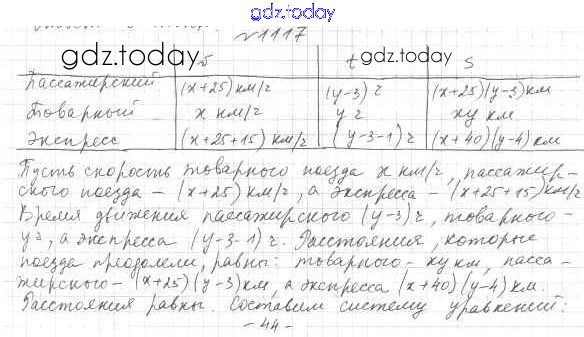 gdz.today
№1117
gdz.today
gdz.today
υ t s
Пассажирский (x+25) км/г (y-3) г (x+25)(y-3) км
Товарный x км/г y г xy км
Экспресс (x+25+15) км/г (y-3-1) г (x+40)(y-4) км
Пусть скорость товарного поезда x км/г, пассажир-
ского поезда - (x+25) км/г, а экспресса - (x+25+15) км/г
Время движения пассажирского (y-3) г, товарного -
y г, а экспресса (y-3-1) г. Расстояния, которые
поезда преодолели, равны: товарного - xy км, пасса-
жирского - (x+25)(y-3) км, а экспресса (x+40)(y-4) км.
Расстояния равны. Составим систему уравнений:
- 44 -